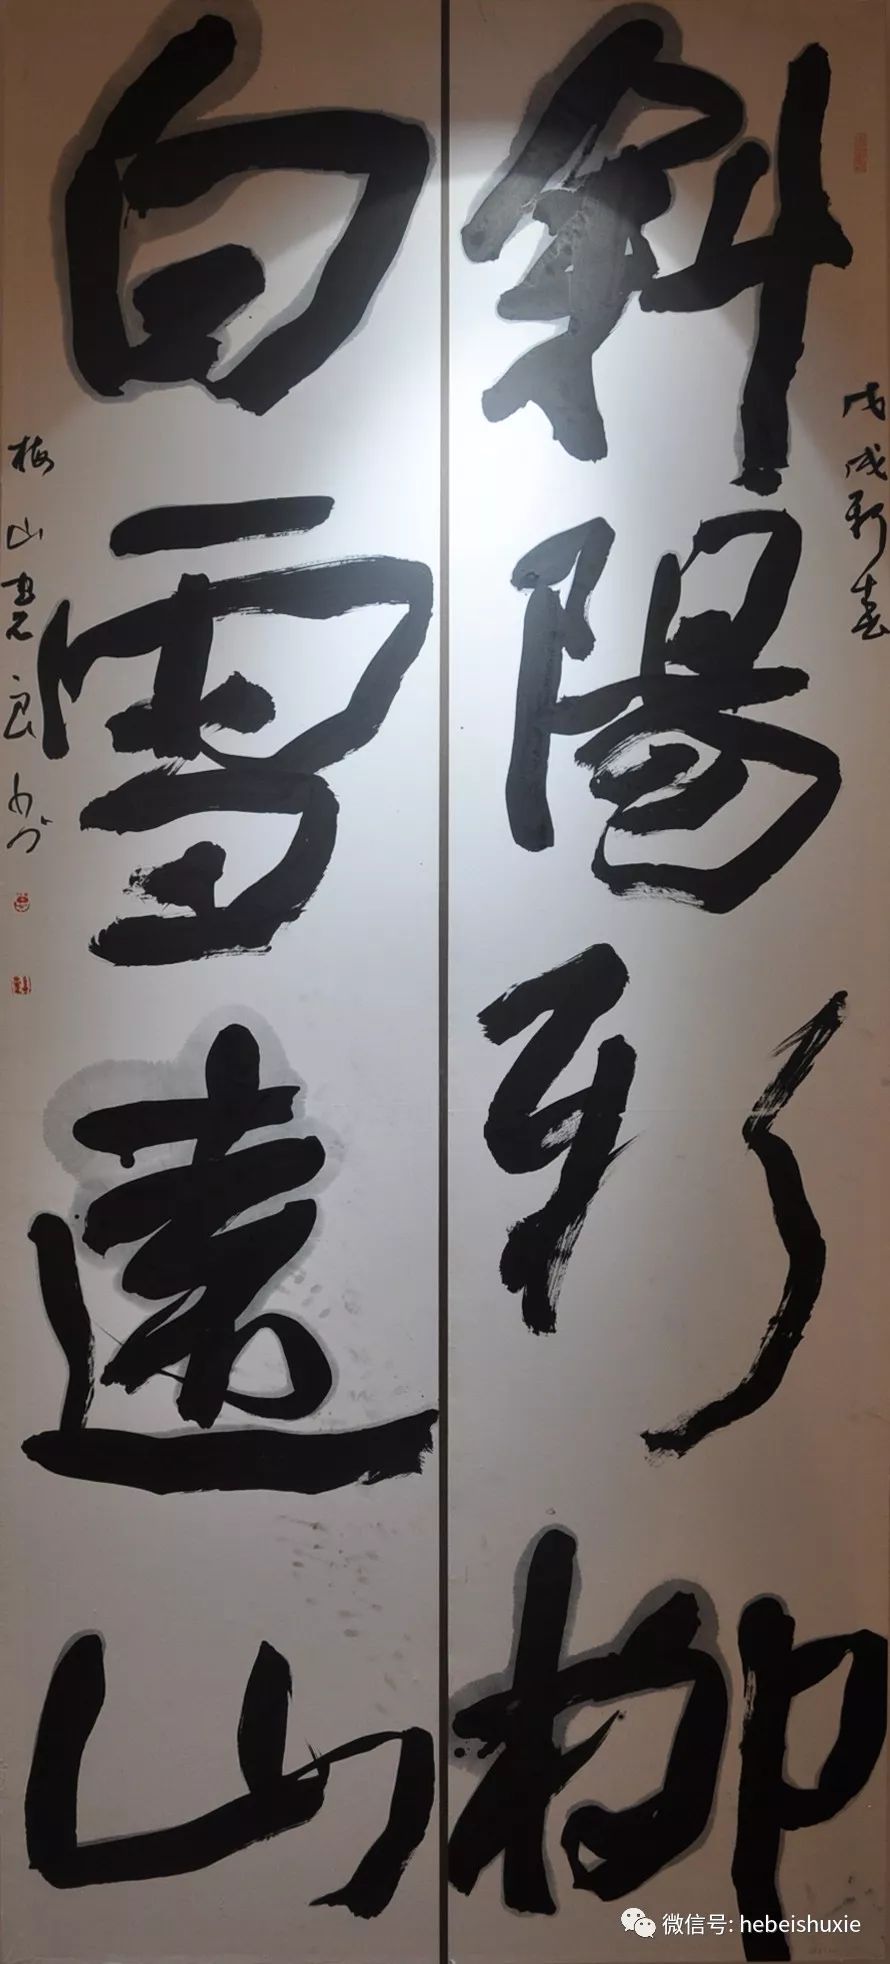 戊戌新春
斜陽新柳
白雪遠山
梅山
微信号: hebeishuxie